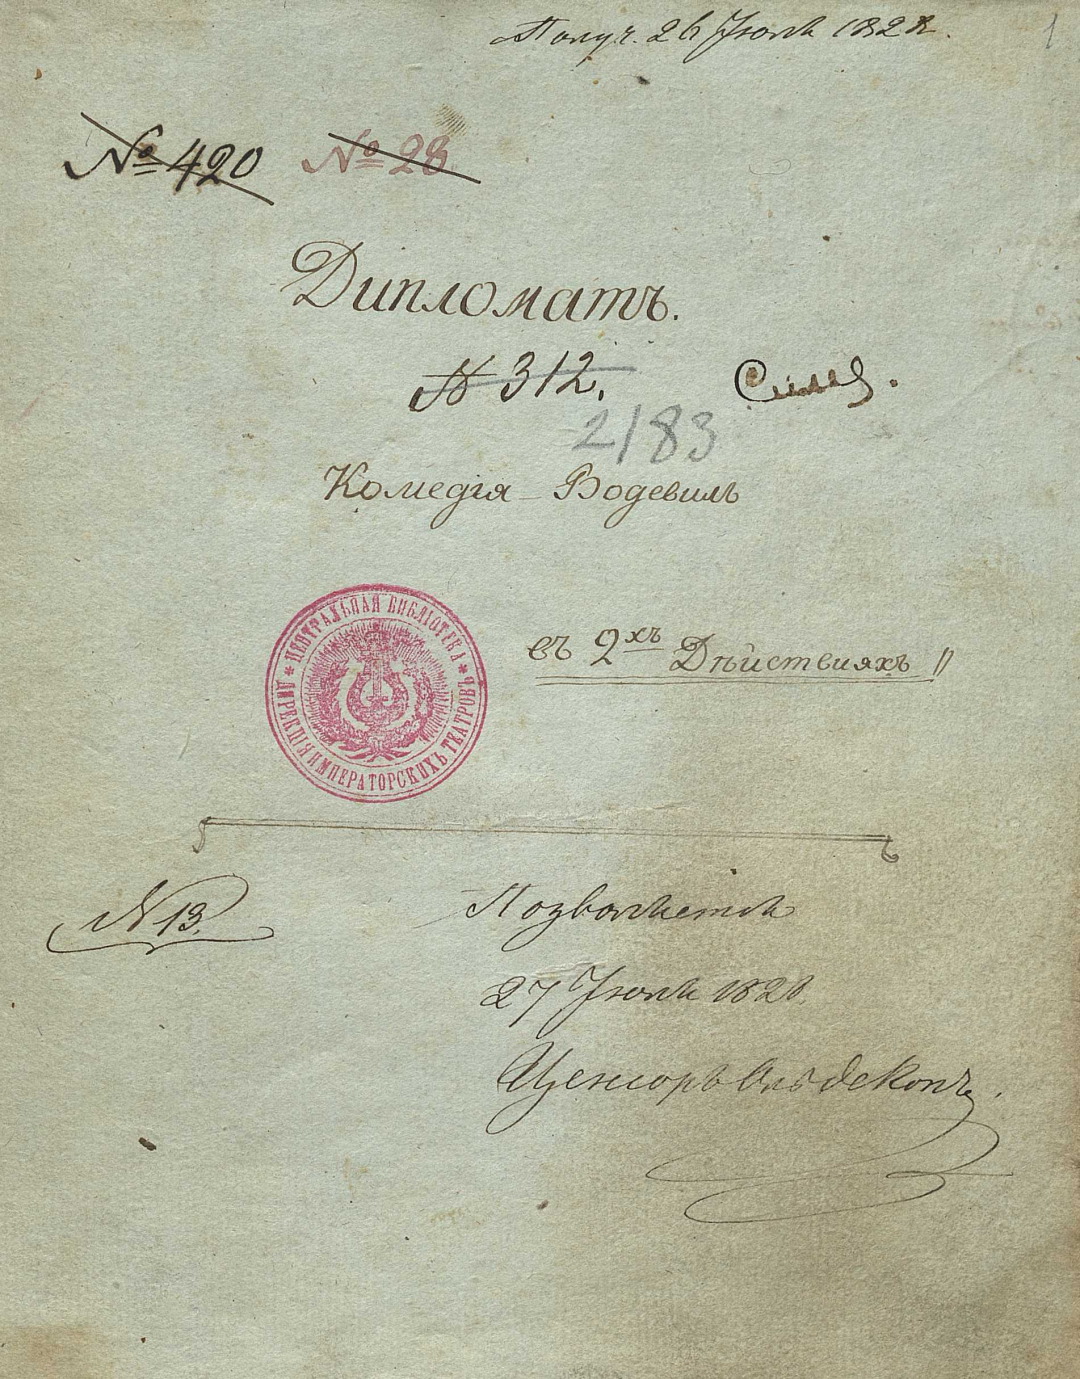 Получ. 26 Июля 1828.
1
№ 420 № 28
Дипломатъ.
N 312.
2183
Комедія - Водевиль
ЦЕНТРАЛЬНАЯ БИБЛІОТЕКА * ДИРЕКЦІЯ ИМПЕРАТОРСКИХЪ ТЕАТРОВЪ *
въ 2хъ Дѣйствияхъ
N 13.
Позволяется
27 Июля 1828.
Ценсоръ Ольдекопъ.